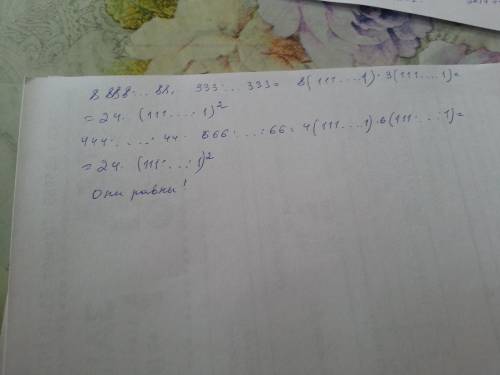 8 888... 88. 333... 333 = 8(111....1)·3(111....1)=
= 24. (111....1)²
444.....44. 666....66 = 4(111...1)·6(111...1)=
= 24. (111....1)²
Они равны!